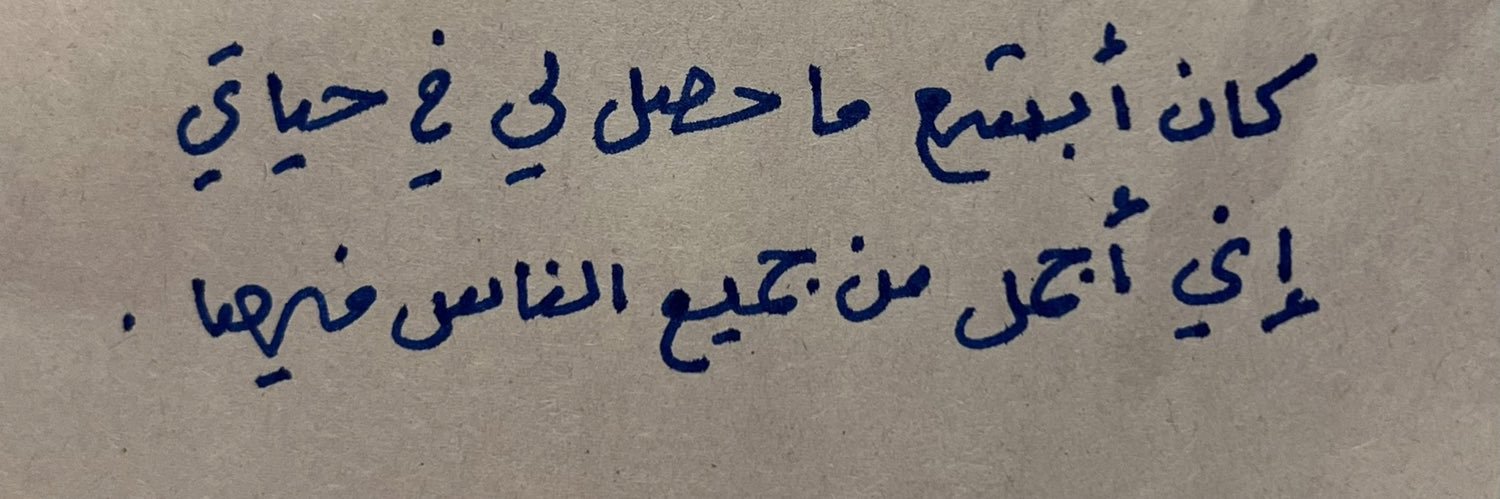 كان أبشع ما حصل لي في حياتي
إني أجمل من جميع الناس فيها .